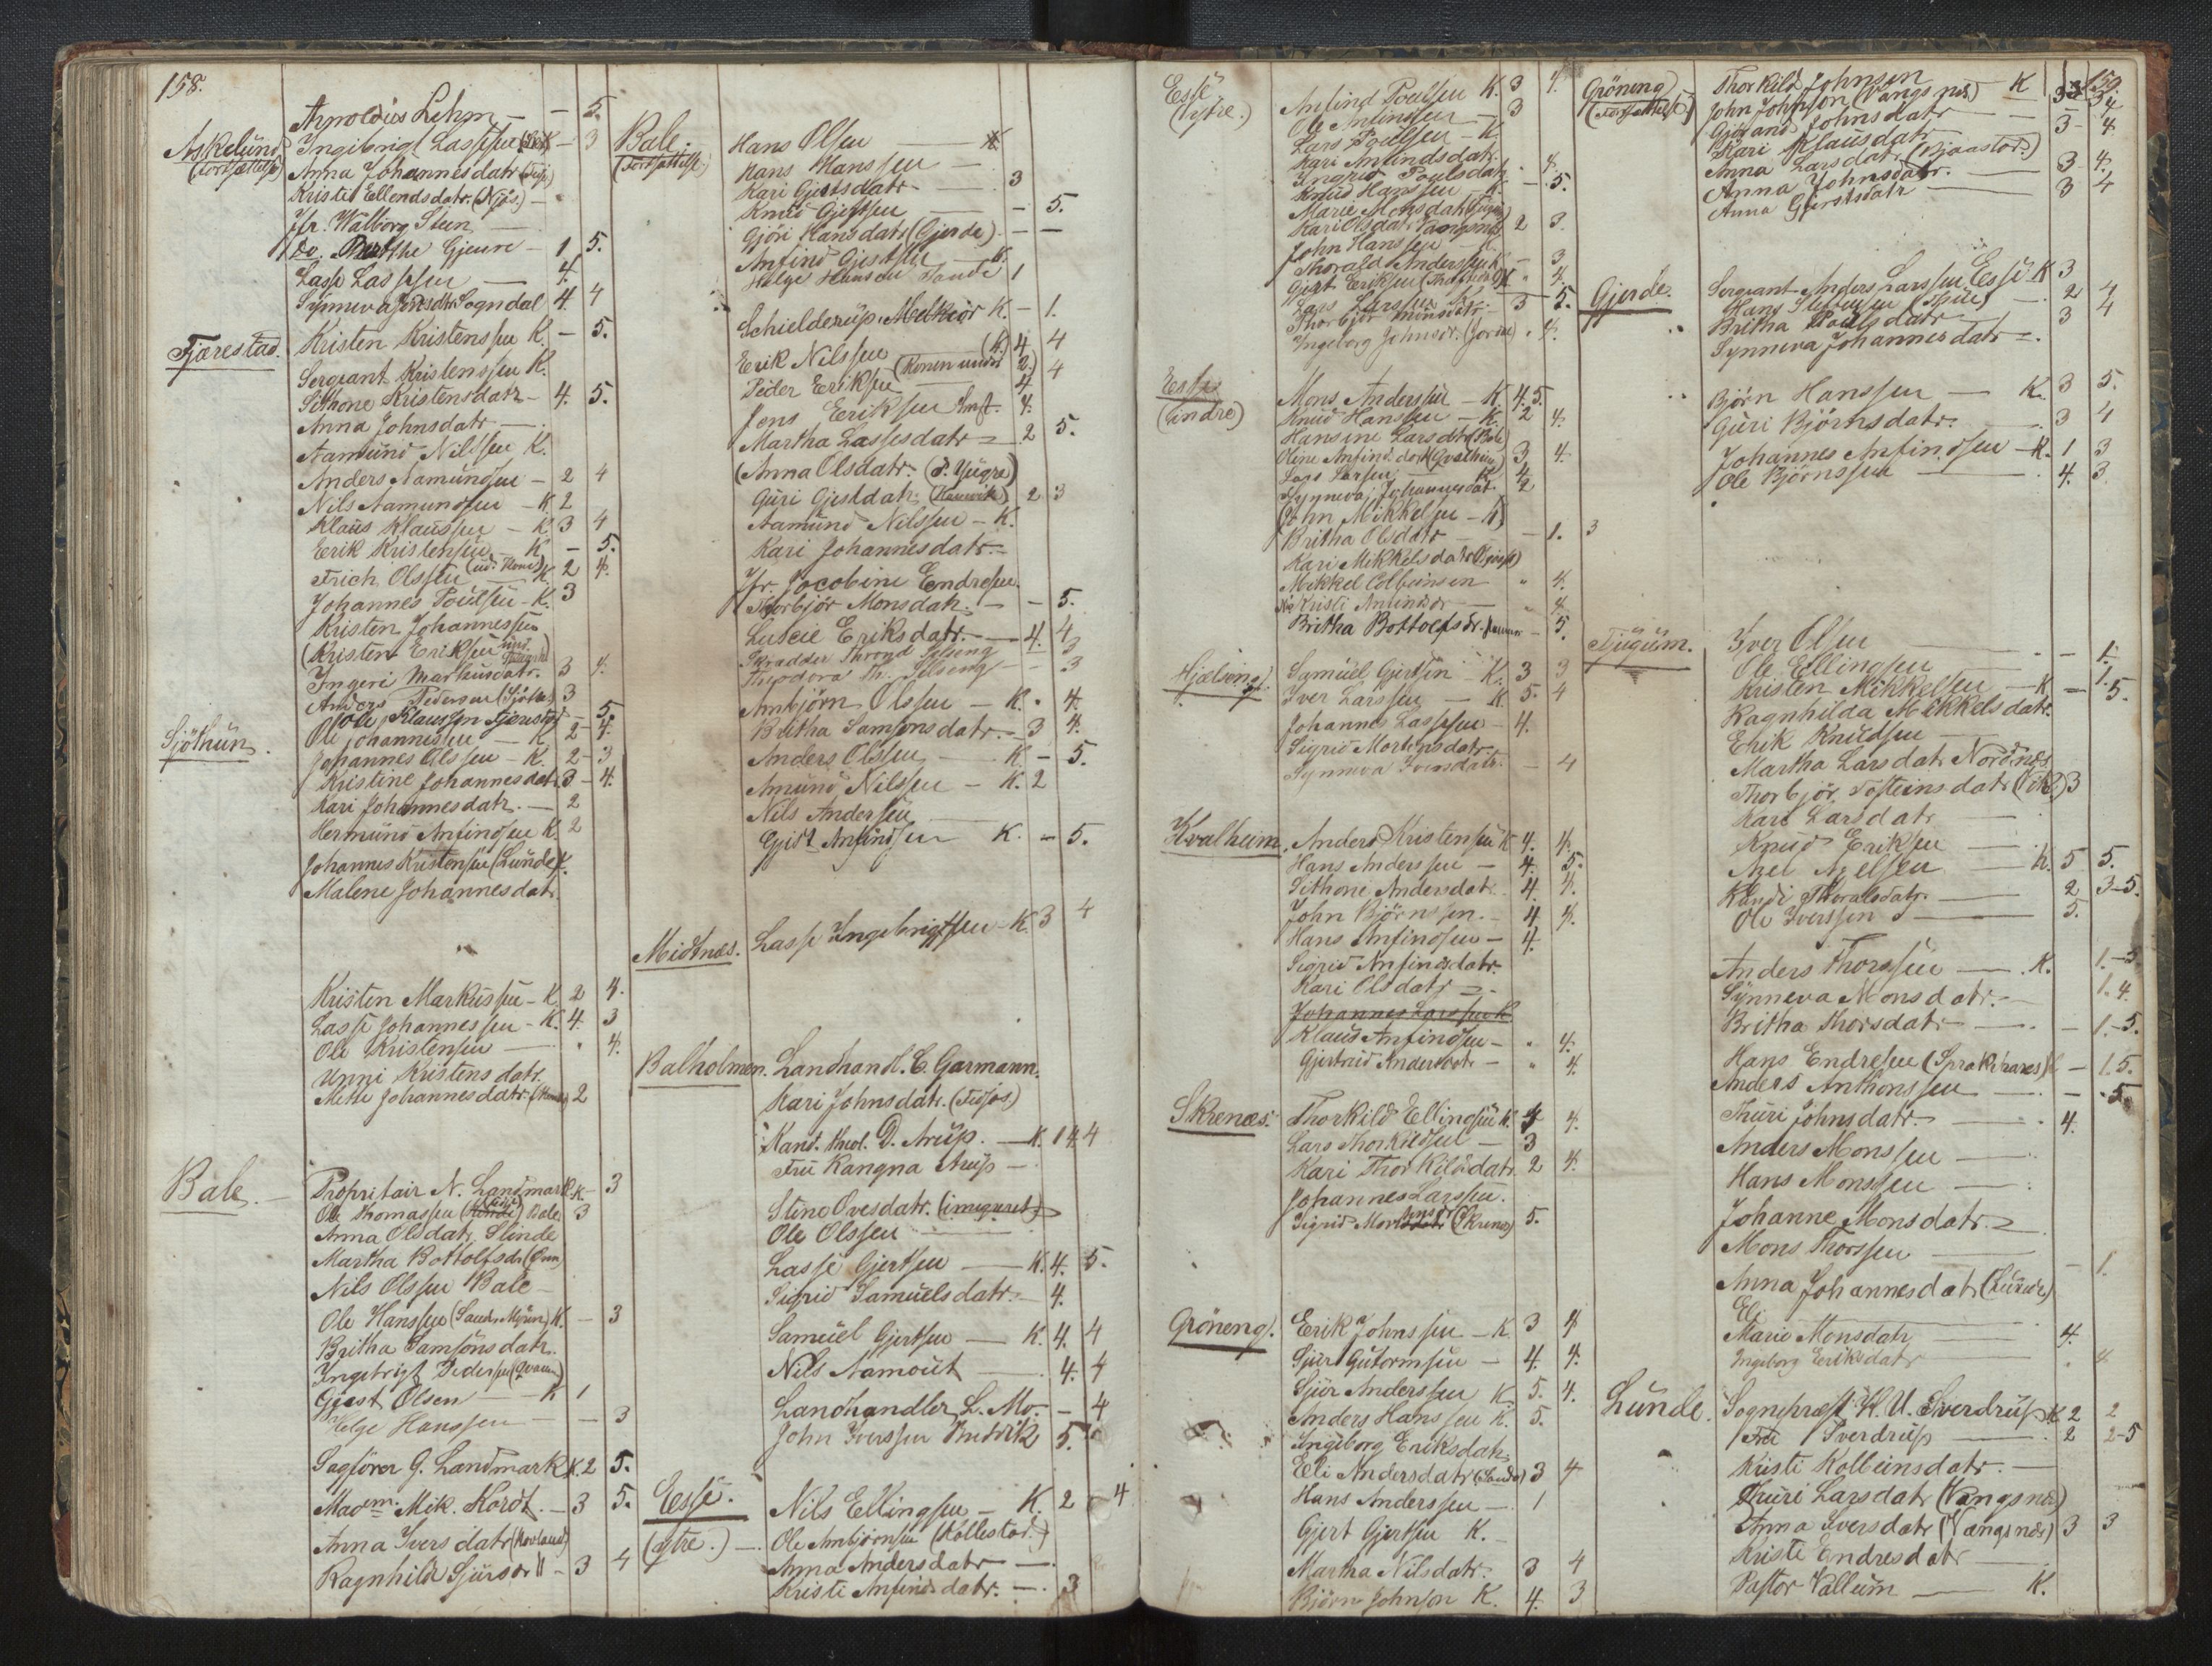 158.
Arnoldus Lehm - - 5.
Askelund (Fortsættelse)
Ingibrigt Lassesen - 3
Anna Johannesdatr
Kristi Ellendsdatr. (Njøs) -
Jfr. Walborg Steen -
Do. Gjeure - 1 5.
Lasse Lassesen - 4.
Synneva Sogndal 4 4
Fjærestad.
Kristen Kristenssen K. - 5.
Sergeant Kristenssen K.
Sithone Kristensdatr - 4. 5.
Anna Johnsdatr -
Aamund Nilssen K.
Anders Aamundsen - 2 4
Nils Aamundsen - K. 2
Klaus Klaussen - K. 3 4
Erik Kristensen - K. - 5.
Frich Olssen K 2 4.
Johannes Poulsen - K. 3
Kristen Johannessen
(Kristen Eriksen
Ingeri Markusdatr. 3 4.
Anders Pedersen 3
Ole Klaussen Fjærestad - 5
Sjøthun.
Ole Johannessen - K. 2 - 4.
Johannes Olssen - K. 2 - 3
Kristine Johannesdatr. 3 - 4.
Kari Johannesdatr. - 2
Hermund Anfindsen K. 2
Johannes Kristensen (Lunde) K.
Malene Johannesdatr.
Kristen Markussen - K. 2 4.
Lasse Johannessen - K. 4. 3
Ole Kristensen - " 4.
Unni Kristensdatr.
Mette Johannesdatr. 2
Bale. -
Propritair N. Landmark K - 3
Ole Thomassen Bale 3
Anna Olsdatr. Slinde
Martha Bottolfsdr
Nils Olssen Bale -
Ole Hanssen K. - 3
Britha Samsonsdatr.
Ingebrigt Pedersen
Gjest Olsen - K 1
Helge Hanssen - - 3
Sagfører G. Landmark K. 2 5.
Madm. Mik. Kordt. - 3 5.
Anna Iversdatr
Ragnhild Sjursdr - 3 4
Bale. (Fortsættelse.)
Hans Olsen K
Hans Hanssen -
Kari Gjertsdatr - 3
Knud Gjertsen - - 5.
Gjøri Hansdatr (Gjerde) - -
Anfind Gjertsen K.
Helge Hansen Tande 1
Schielderup, Melkior K. - 1.
Erik Nilssen (K) 4 4
(Konen under 2.)
Peder Eriksen - 4 4
Jens Eriksen 4.
Martha Lassesdatr - 2 5.
(Anna Olsdatr. (P. Yugre)
Guri Gjestdatr. 2 3
Aamund Nilssen - K.
Kari Johannesdatr. -
Jfr. Jocobine Endresen.
Thorbjør Monsdatr. - - 5.
Luscie Eriksdatr. - 4. 4
Skradder Thrond Selseng - 3
Theodora Th. Selseng - - 3
Anbjørn Olssen - K. " 4.
Britha Samsonsdatr. - 3 4.
Anders Olssen - K. - 5.
Amund Nilssen - K. 2
Nils Andersen -
Gjest Anfindsen K. - 5.
Midtnæs.
Lasse Ingebrigtssen - K. 3 4
Balholmen.
Landhandl. C. Garmann.
Kari Johnsdatr. (Feigjos)
Kand. theol. D. Arup. - K. 1 4. 4
Fru Rangna Arup -
Stine Ovesdatr. (imigreret)
Ole Olssen -
Lasse Gjertsen - K. 4. 5.
Sigrid Samuelsdatr. - 4.
Samuel Gjertsen - K. 4. 4
Nils Aamout - 4. 4
Landhandler L. Mo. - 4
John Iverssen Hudrik 5.
Esse. (østre.)
Nils Ellingsen - K. 2 - 4
Ole Anbjørnsen
Anna Andersdatr -
Kristi Anfindsdatr. - 3
159.
Esse (Vestre.)
Anfind Poulsen K. 3 4.
Ole Anfindssen - 3
Lars Poulsen - K
Kari Anfindsdatr.
Ingrid Poulsdatr. " 4.
Knud Hanssen - K. - 5.
Marie Monsdatr
Kari Olsdatr. Vangsnæs 2 3.
John Hanssen - K.
Thorald Anderssen K - 3
Gjert Eriksen K " 4.
Lars Larssen K. - 3 5.
Thorbjør
Ingeborg Johnsdr. " 4.
Esse (indre)
Mons Anderssen - K. 4. 5.
Knud Hanssen - K. 2 4.
Hansine Larsdtr (Bale)
Oline Anfindsdatr (Qvalheim) 3 4.
Lars Larsen - K. 4
Synneva Johannesdatr. 2
John Mikkelsen - K
Britha Olsdatr - - 1. 3
Kari Mikkelsdatr
Mikkel Colbeinsen " 4.
Kristi Anfindsdr - " 4.
Britha Bottolfsdr. - 5.
Hjælseng.
Samuel Gjertsen - K. 3 3
Iver Larssen - K. 5. 4
Johannes Lassesen - 4.
Sigrid Mortensdatr.
Synneva Iversdatr. - 4
Kvalheim.
Anders Kristensen K 4. 4.
Hans Anderssen - 4. 5.
Sithone Andersdatr. 4. 4.
John Bjørnssen. - 4. 4.
Hans Anfindsen - 4.
Sigrid Anfindsdatr.
Kari Olsdatr -
Johannes Larssen K.
Klaus Anfindsen - " 4.
Gjertrud Andersdatr - " 4.
Skrenæs.
Thorkild Ellingsen K. 4 4.
Lars Thorkildsen - 3
Kari Thorkildsdatr. 2 4.
Johannes Larssen.
Sigrid (Skrenæs) 5.
Grøneng.
Erik Johnssen - K. 3 4
Sjur Gutormsen - 4. 4.
Sjur Anderssen K. 5. 4.
Anders Hanssen K. 5.
Ingeborg Eriksdatr.
Eli Andersdatr (Tande) 3 4
Hans Anderssen - 1
Gjert Gjertsen K. -
Martha Nilsdatr. 3 4
Bjørn Johnson K. 4. 3
Grøneng (Fortsættelse)
Thorkild Johnsen - K
John Johnson (Vangsnæs) - 3 - 4
Gjørand Johnsdatr - 3 - 4
Kari Klausdatr
Anna Larsdatr (Bjaastad.) 3 4.
Anna Johnsdatr. - 3 4
Anna Gjertsdatr -
Gjerde.
Sergeant Anders Larssen Esse K 3
Hans - 2 4
Britha Poulsdatr - 3 4
Synneva Johannesdatr -
Bjørn Hanssen - K. 3 5.
Guri Bjørnsdatr. - 3 4
Johannes Anfindsen - K. 1 3
Ole Bjørnssen - 4. 3
Tjugum.
Iver Olsen
Ole Ellingsen - - 1.
Kristen Mikkelsen - K - 1. 5.
Ragnhilda Mikkelsdatr.
Erik Knudsen -
Martha Larsdatr. Nordnæs
Thorbjør Tosteinsdatr (Vik) 3
Kari Larsdatr -
Knud Eriksen -
Axel Axelsen - K. 5 5.
Randi Thoralsdatr. - 2 3-5.
Ole Iverssen - 5.
Anders Thorssen - K. 1. - 3
Synneva Monsdatr. - 1. 4.
Britha Thorsdatr - - 1. - 5.
Hans Endresen - 1. 5.
Anders Anthonssen - - . 5
Thuri Johnsdatr. - 4.
Anders Monssen -
Hans Monssen -
Johanne Monsdatr. -
Mons Thorssen - - 1.
Anna Johannesdatr (Lunde)
Eli -
Marie Monsdatr - 4.
Ingeborg Eriksdatr " 4
Lunde.
Sogneprest H. U. Sverdrup K 2 2
Fru Sverdrup - 2 2-5
Kristi Kolbeinsdatr. -
Thuri Larsdatr (Vangsnæs)
Anna Iversdatr (Vangsnæs) 3 3
Kristi Endresdatr -
Pastor Vallum - K.